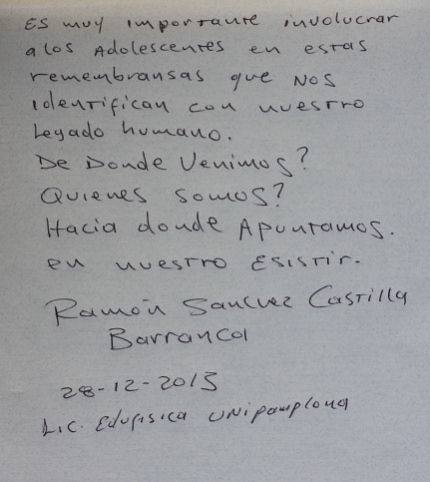 Es muy importante involucrar
a los Adolescentes en estas
remembransas que nos
identifican con nuestro
Legado humano.
De Donde Venimos?
Quienes somos?
Hacia donde Apuntamos.
en nuestro Esistir.
Ramón Sanchez Castilla
Barranca
28-12-2015
Lic. Edufisica Unipamplona